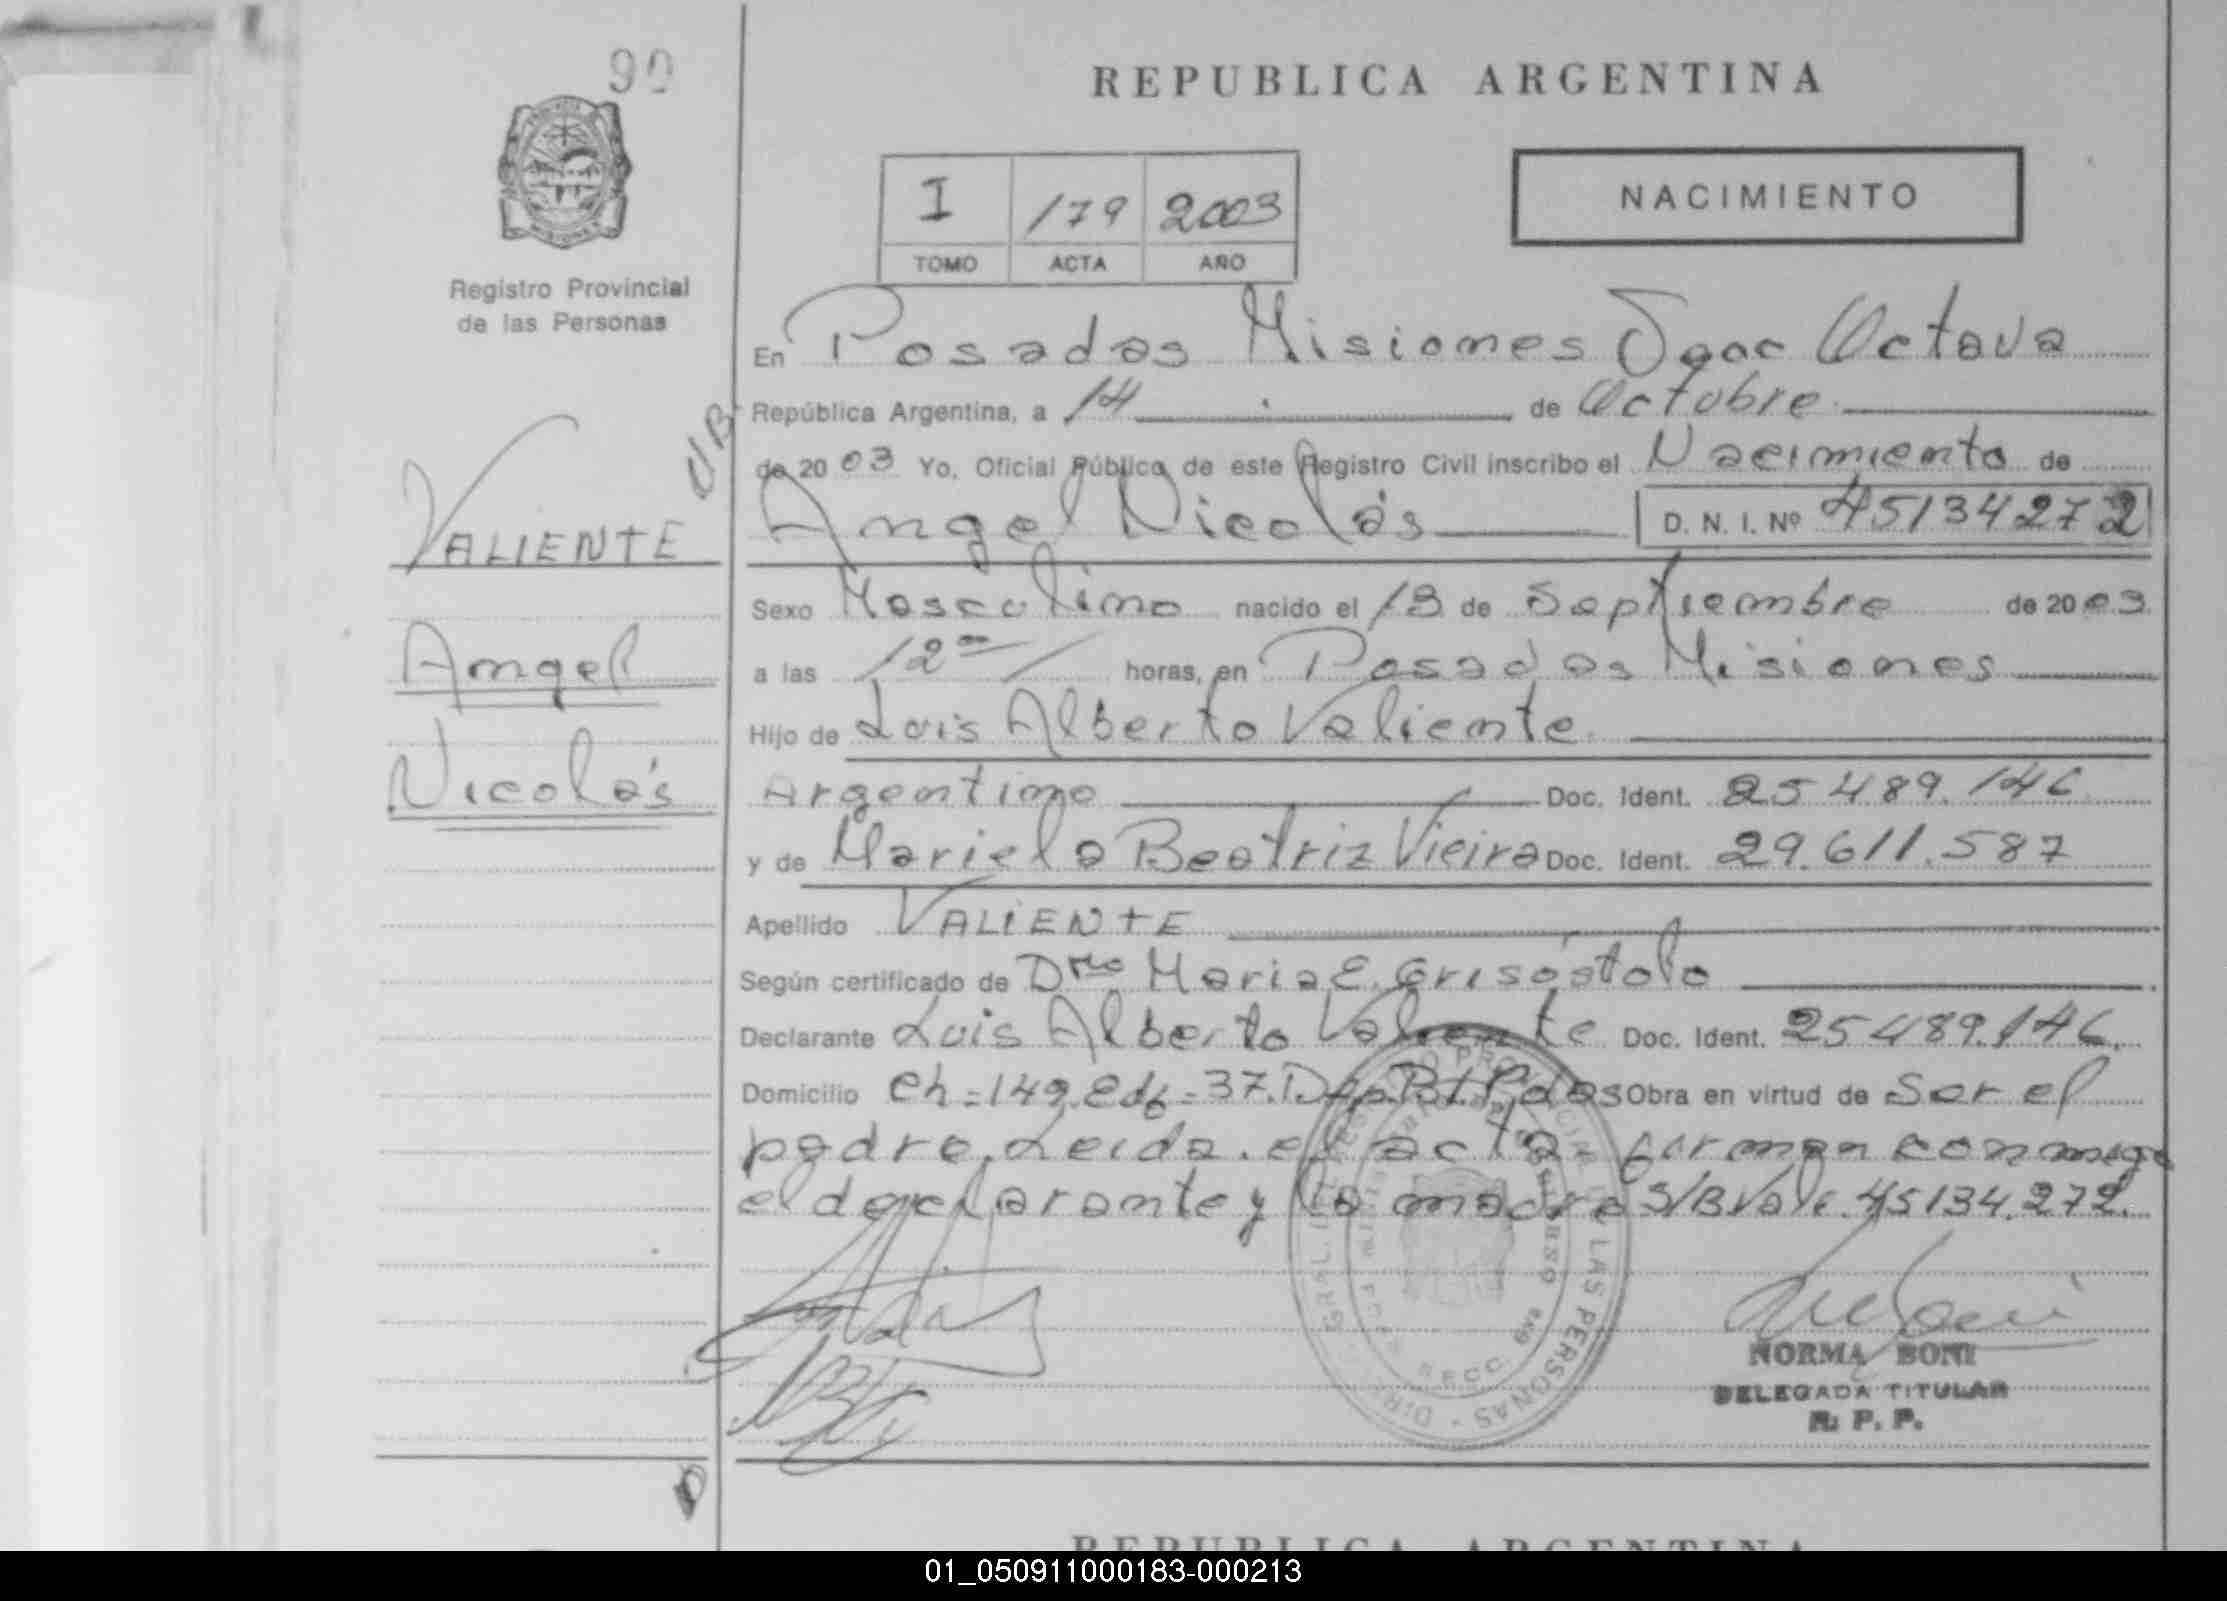 90
REPUBLICA ARGENTINA
I 179 2003
TOMO ACTA AÑO
NACIMIENTO
Registro Provincial
de las Personas
En Posadas Misiones Secc Octava
República Argentina, a 14 de Octubre
de 20 03 Yo, Oficial Público de este Registro Civil inscribo el Nacimiento de
Angel Nicolás D. N. I. Nº 45134272
VALIENTE
Angel
Nicolás
Sexo Masculino nacido el 13 de Septiembre de 20 03
a las 12 horas, en Posadas Misiones
Hijo de Luis Alberto Valiente
Argentino Doc. Ident. 25489.146
y de Mariela Beatriz Vieira Doc. Ident. 29.611.587
Apellido VALIENTE
Según certificado de Dra Maria E. Grisóstolo
Declarante Luis Alberto Valiente Doc. Ident. 25489.146.
Domicilio Ch=149.Edf=37.Dep.B.Pdas Obra en virtud de Ser el
padre. Leida el acta firman conmigo
el declarante y la madre S/B Vale.45134.272.
NORMA BONI
DELEGADA TITULAR
R. P. P.
REPUBLICA ARGENTINA
01_050911000183-000213